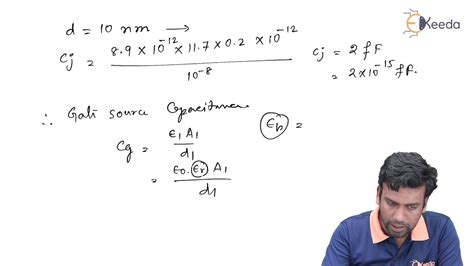 d = 10 nm →
Cj = 8.9 × 10⁻¹² × 11.7 × 0.2 × 10⁻¹² / 10⁻⁸
Cj = 2 fF
= 2×10⁻¹⁵ fF.
∴ Gate source Capacitance
Cg = ε₁ A₁ / d₁
= ε₀. εr A₁ / d₁
εr =
Ekeeda